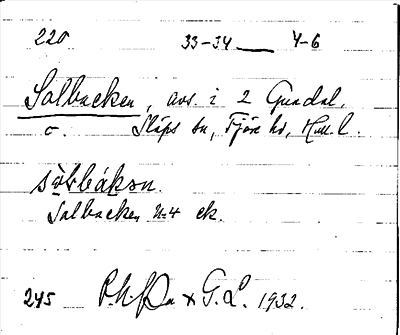 220 33-34 4-6
Salbacken, avs. i 2 Gundal.
o. Släps sn, Fjäre hd, Hall. l.
sə̀lbákən.
Salbacken N:4 ek.
245 G.L. 1932.